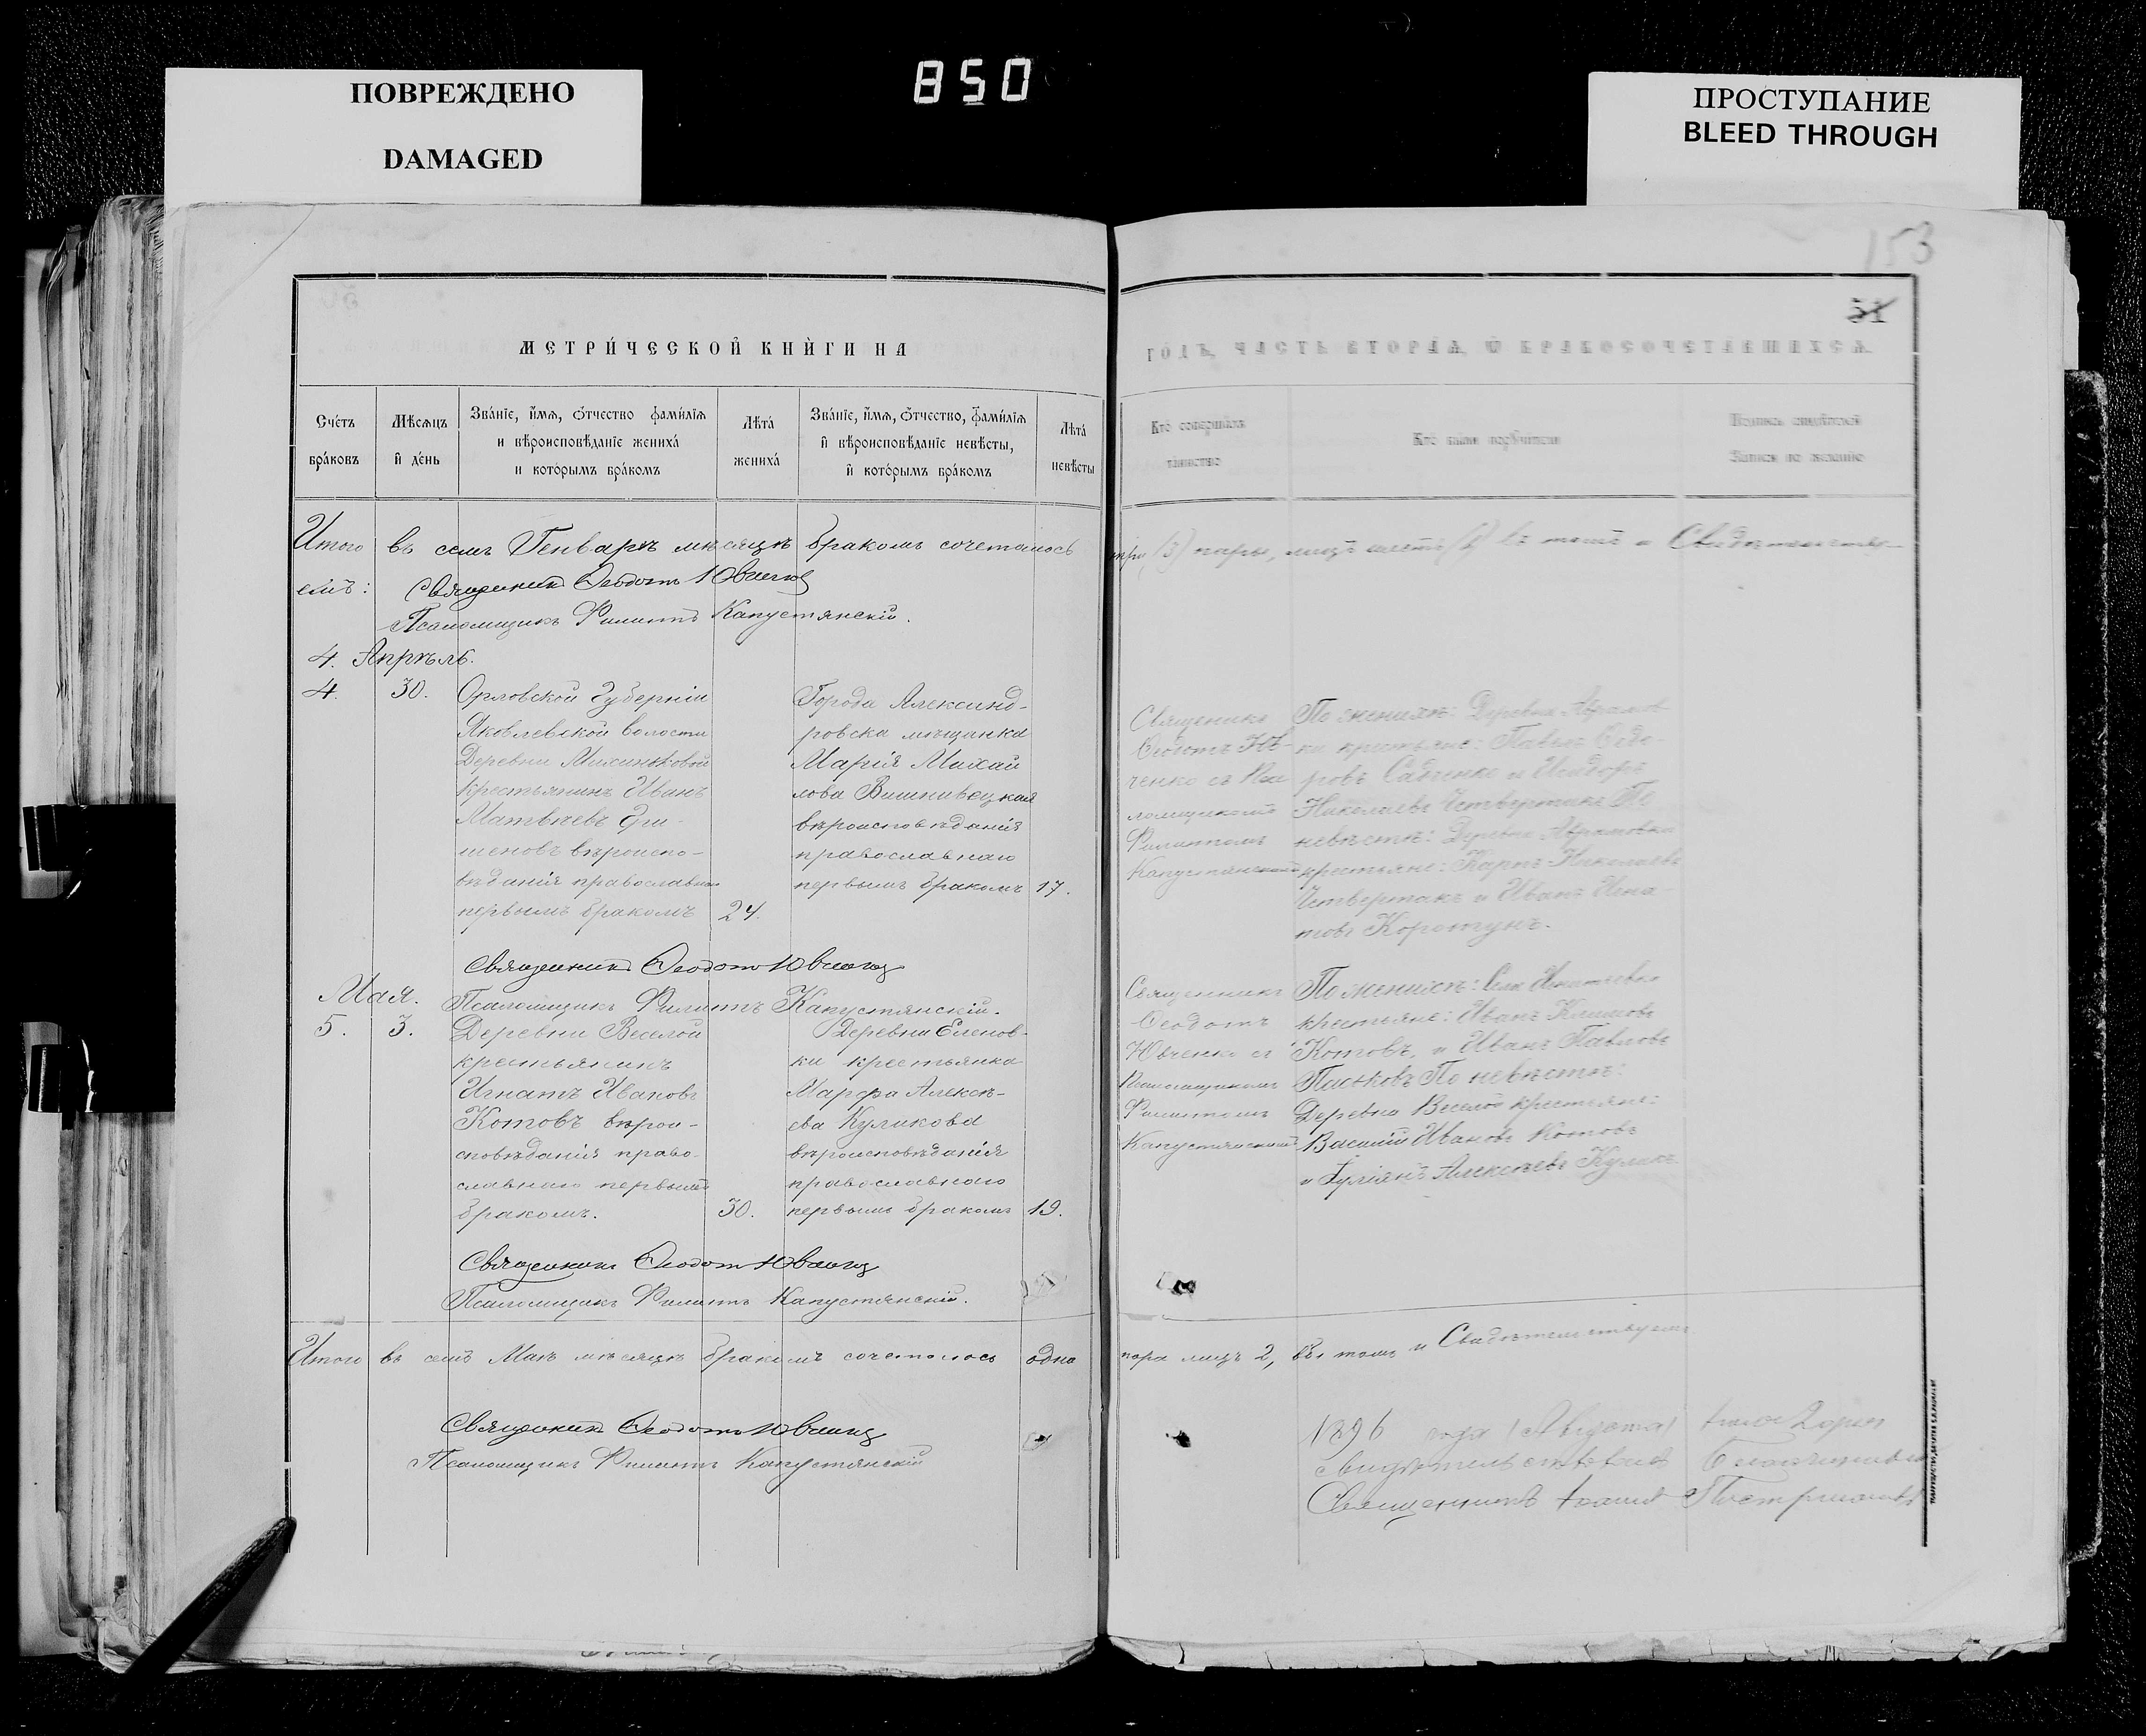 850
ПОВРЕЖДЕНО
DAMAGED
ПРОСТУПАНИЕ
BLEED THROUGH
153
51
МЕТРИ́ЧЕСКОЙ КНИ́ГИ НА
ГО́ДЪ, ЧАСТЬ ВТОРА́Я, Ѡ БРАКОСОЧЕТАВШИХСЯ.
Сче́тъ
бра́ковъ
Мѣ́сѧцъ
и҆ де́нь
Зва́нїе, и҆́мѧ, ѻ҆́тчество фами́лїѧ
и вѣроисповѣ́данїе жениха́
и кото́рымъ бра́комъ
Лѣта́
жениха́
Зва́нїе, и҆́мѧ, ѻ҆́тчество, фами́лїѧ
и҆ вѣроисповѣ́данїе невѣ́сты,
и҆ кото́рымъ бра́комъ
Лѣта́
невѣ́сты
Кто̀ соверша́лъ
та́инство
Кто̀ бы́ли поручи́тели
Итого въ семъ Генварѣ мѣсяцѣ бракомъ сочеталось
три (3) пары, лицъ шесть (6) въ томъ и Свидѣтельству-
емъ:
Священникъ Ѳеодотъ Ювченко
Псаломщикъ Филиппъ Капустянскій.
4. Апрѣль.
4. 30.
Орловской Губерніи
Яковлевской волости
Деревни
крестьянинъ Иванъ
Матвѣевъ Гри-
шеновъ вѣроиспо-
вѣданія православнаго
первымъ бракомъ
24.
Города Александ-
ровска мѣщанка
Марія Михай
лова Вишнивецкая
вѣроисповѣданія
православнаго
первымъ бракомъ 17.
Священникъ
Ѳеодотъ Юв-
ченко съ Пса
ломщикомъ
Филиппомъ
Капустянскимъ
По женихѣ: Деревни Абрамов
ки крестьяне: Павелъ Ѳедо-
ровъ Савченко и Исидоръ
Николаевъ Четвертакъ По
невѣстѣ: Деревни Абрамовки
крестьяне: Карпъ Николаевъ
Четвертакъ и Иванъ Игна-
товъ Коротунъ.
Священникъ Ѳеодотъ Ювченко
Псаломщикъ Филиппъ Капустянскій.
Мая.
5. 3.
Деревни Веселой
крестьянинъ
Игнатъ Ивановъ
Котовъ вѣрои-
сповѣданія право-
славнаго первымъ
бракомъ.
30.
Деревни Еленов-
ки крестьянка
Марфа Алексѣ-
ева Куликова
вѣроисповѣданія
православнаго
первымъ бракомъ 19.
Священникъ
Ѳеодотъ
Ювченко съ
Псаломщикомъ
Филиппомъ
Капустянскимъ
По женихѣ: Села Игнатьевки
крестьяне: Иванъ Климовъ
Котовъ, и Иванъ Павловъ
Пастьковъ По невѣстѣ:
Деревни Веселой крестьяне:
Василій Ивановъ Котовъ
и Іуліянъ Алексѣевъ Куликъ
Священникъ Ѳеодотъ Ювченко
Псаломщикъ Филиппъ Капустянскій.
Итого въ семъ Маѣ мѣсяцѣ бракомъ сочеталось одна
пара лицъ 2, въ томъ и Свидѣтельствуемъ
Священникъ Ѳеодотъ Ювченко
Псаломщикъ Филиппъ Капустянскій
1896 года Августа
свидѣтельствовалъ Благочинный
Священникъ Іоаннъ